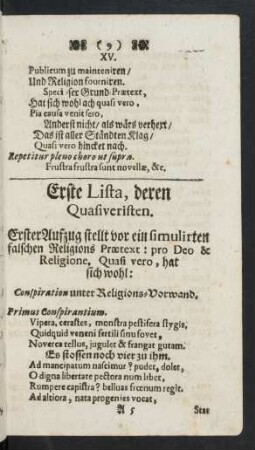 (9)
XV.
Publicum zu mainteniren/
Und Religion fourniren.
Speci ser Grund-Prætext,
Hat sich wohl ach quasi vero,
Pia causa venit sero,
Anderst nicht/ als wärs verhext/
Das ist aller Ständten Klag/
Quasi vero hincket nach.
Repetitur pleno choro ut supra.
Frustra frustra sunt novellæ, &c.
Erste Lista, deren
Quasiveristen.
Erster Aufzug stellt vor ein simulirten
falschen Religions Prætext: pro Deo &
Religione, Quasi vero, hat
sich wohl:
Conspiration unter Religions-Vorwand.
Primus Conspirantium.
Vipera, cerastes, monstra pestifera stygis,
Quidquid veneni fertili sinu fovet,
Noverca tellus, jugulet & frangat gutam.
Es stossen noch vier zu ihm.
Ad mancipatum nascimur? pudet, dolet,
O digna libertate pectora num libet,
Rumpere capistra? belluas frænum regit.
Ad altiora, nata progenies vocat,
A 5
Stat